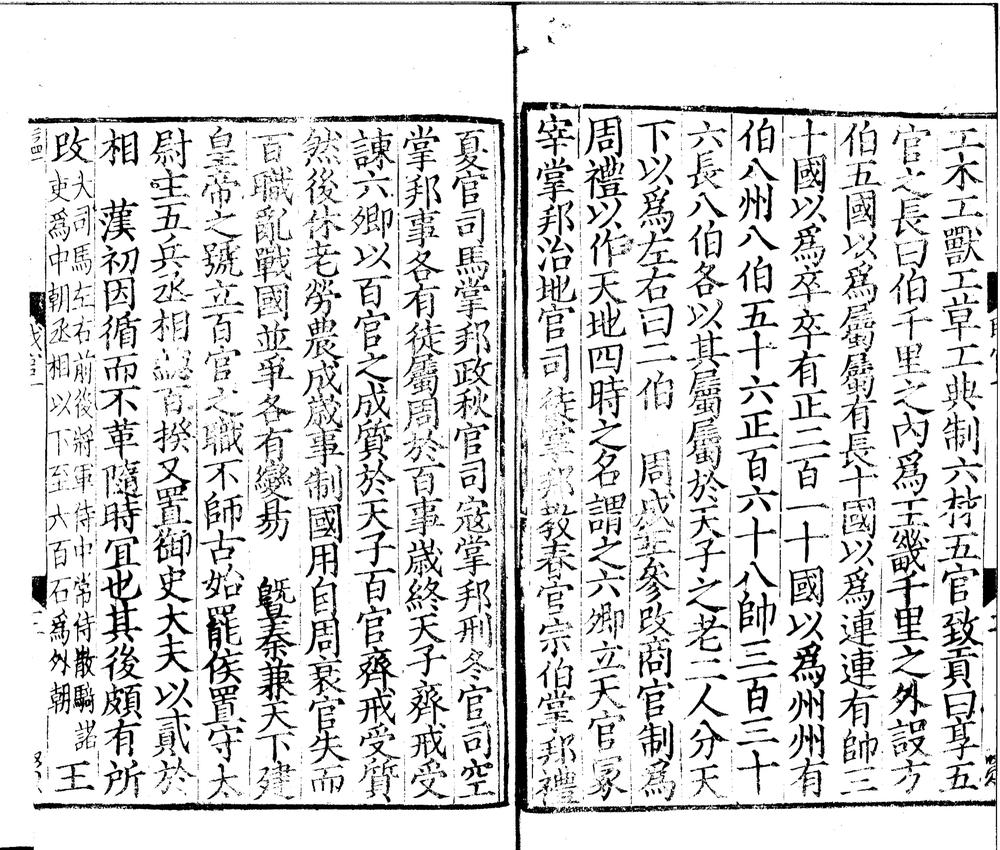 工木工獸工草工典制六材五官致貢曰享五
官之長曰伯千里之內爲王畿千里之外設方
伯五國以爲屬屬有長十國以爲連連有帥三
十國以爲卒卒有正二百一十國以爲州州有
伯八州八伯五十六正百六十八帥三百三十
六長八伯各以其屬屬於天子之老二人分天
下以爲左右曰二伯　周成王參改商官制爲
周禮以作天地四時之名謂之六卿立天官冢
宰掌邦治地官司徒掌邦教春官宗伯掌邦禮
夏官司馬掌邦政秋官司寇掌邦刑冬官司空
掌邦事各有徒屬周於百事歲終天子齊戒受
諫六卿以百官之成質於天子百官齊戒受質
然後休老勞農成歲事制國用自周衰官失而
百職亂戰國並爭各有變易　暨秦兼天下建
皇帝之號立百官之職不師古始罷侯置守太
尉主五兵丞相總百揆又置御史大夫以貳於
相　漢初因循而不革隨時宜也其後頗有所
改大司馬左右前後將軍侍中常侍散騎諸
吏爲中朝丞相以下至六百石爲外朝王